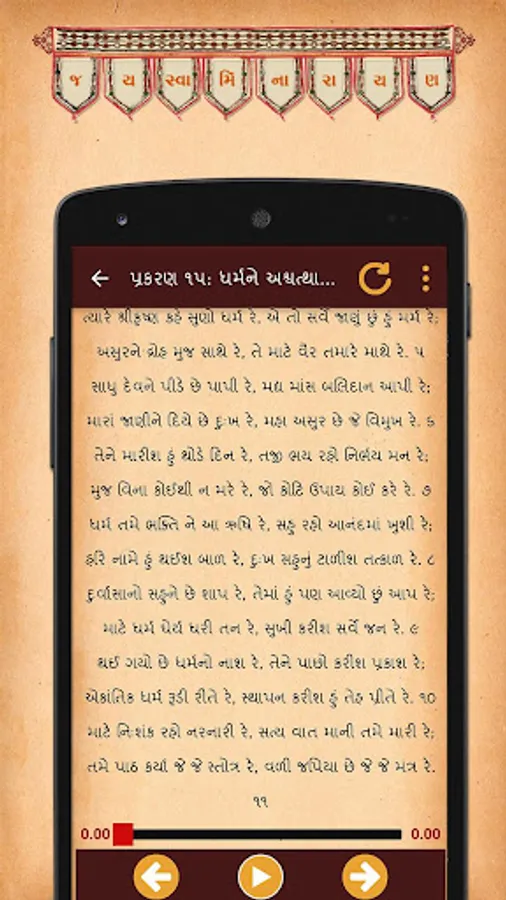 જ ય સ્વા મિ ના રા ય ણ
પ્રકરણ ૧૫: ધર્મને અશ્વત્થા...
ત્યારે શ્રીકૃષ્ણ કહે સુણો ધર્મ રે, એ તો સર્વે જાણું છું હું મર્મ રે;
અસુરને દ્રોહ મુજ સાથે રે, તે માટે વૈર તમારે માથે રે. ૫
સાધુ દેવને પીડે છે પાપી રે, મદ્ય માંસ બલિદાન આપી રે;
મારાં જાણીને દિયે છે દુઃખ રે, મહા અસુર છે જે વિમુખ રે. ૬
તેને મારીશ હું થોડે દિન રે, તજી ભય રહો નિર્ભય મન રે;
મુજ વિના કોઈથી ન મરે રે, જો કોટિ ઉપાય કોઈ કરે રે. ૭
ધર્મ તમે ભક્તિ ને આ ઋષિ રે, સહુ રહો આનંદમાં ખુશી રે;
હરિ નામે હું થઈશ બાળ રે, દુઃખ સહુનું ટાળીશ તત્કાળ રે. ૮
દુર્વાસાનો સહુને છે શાપ રે, તેમાં હું પણ આવ્યો છું આપ રે;
માટે ધર્મ ધૈર્ય ધરી તન રે, સુખી કરીશ સર્વે જન રે. ૯
થઈ ગયો છે ધર્મનો નાશ રે, તેને પાછો કરીશ પ્રકાશ રે;
એકાંતિક ધર્મ રૂડી રીતે રે, સ્થાપન કરીશ હું તેહ પ્રીતે રે. ૧૦
માટે નિઃશંક રહો નરનારી રે, સત્ય વાત માની તમે મારી રે;
તમે પાઠ કર્યા જે જે સ્તોત્ર રે, વળી જપિયા છે જે જે મંત્ર રે.
૧૧
0.00 0.00